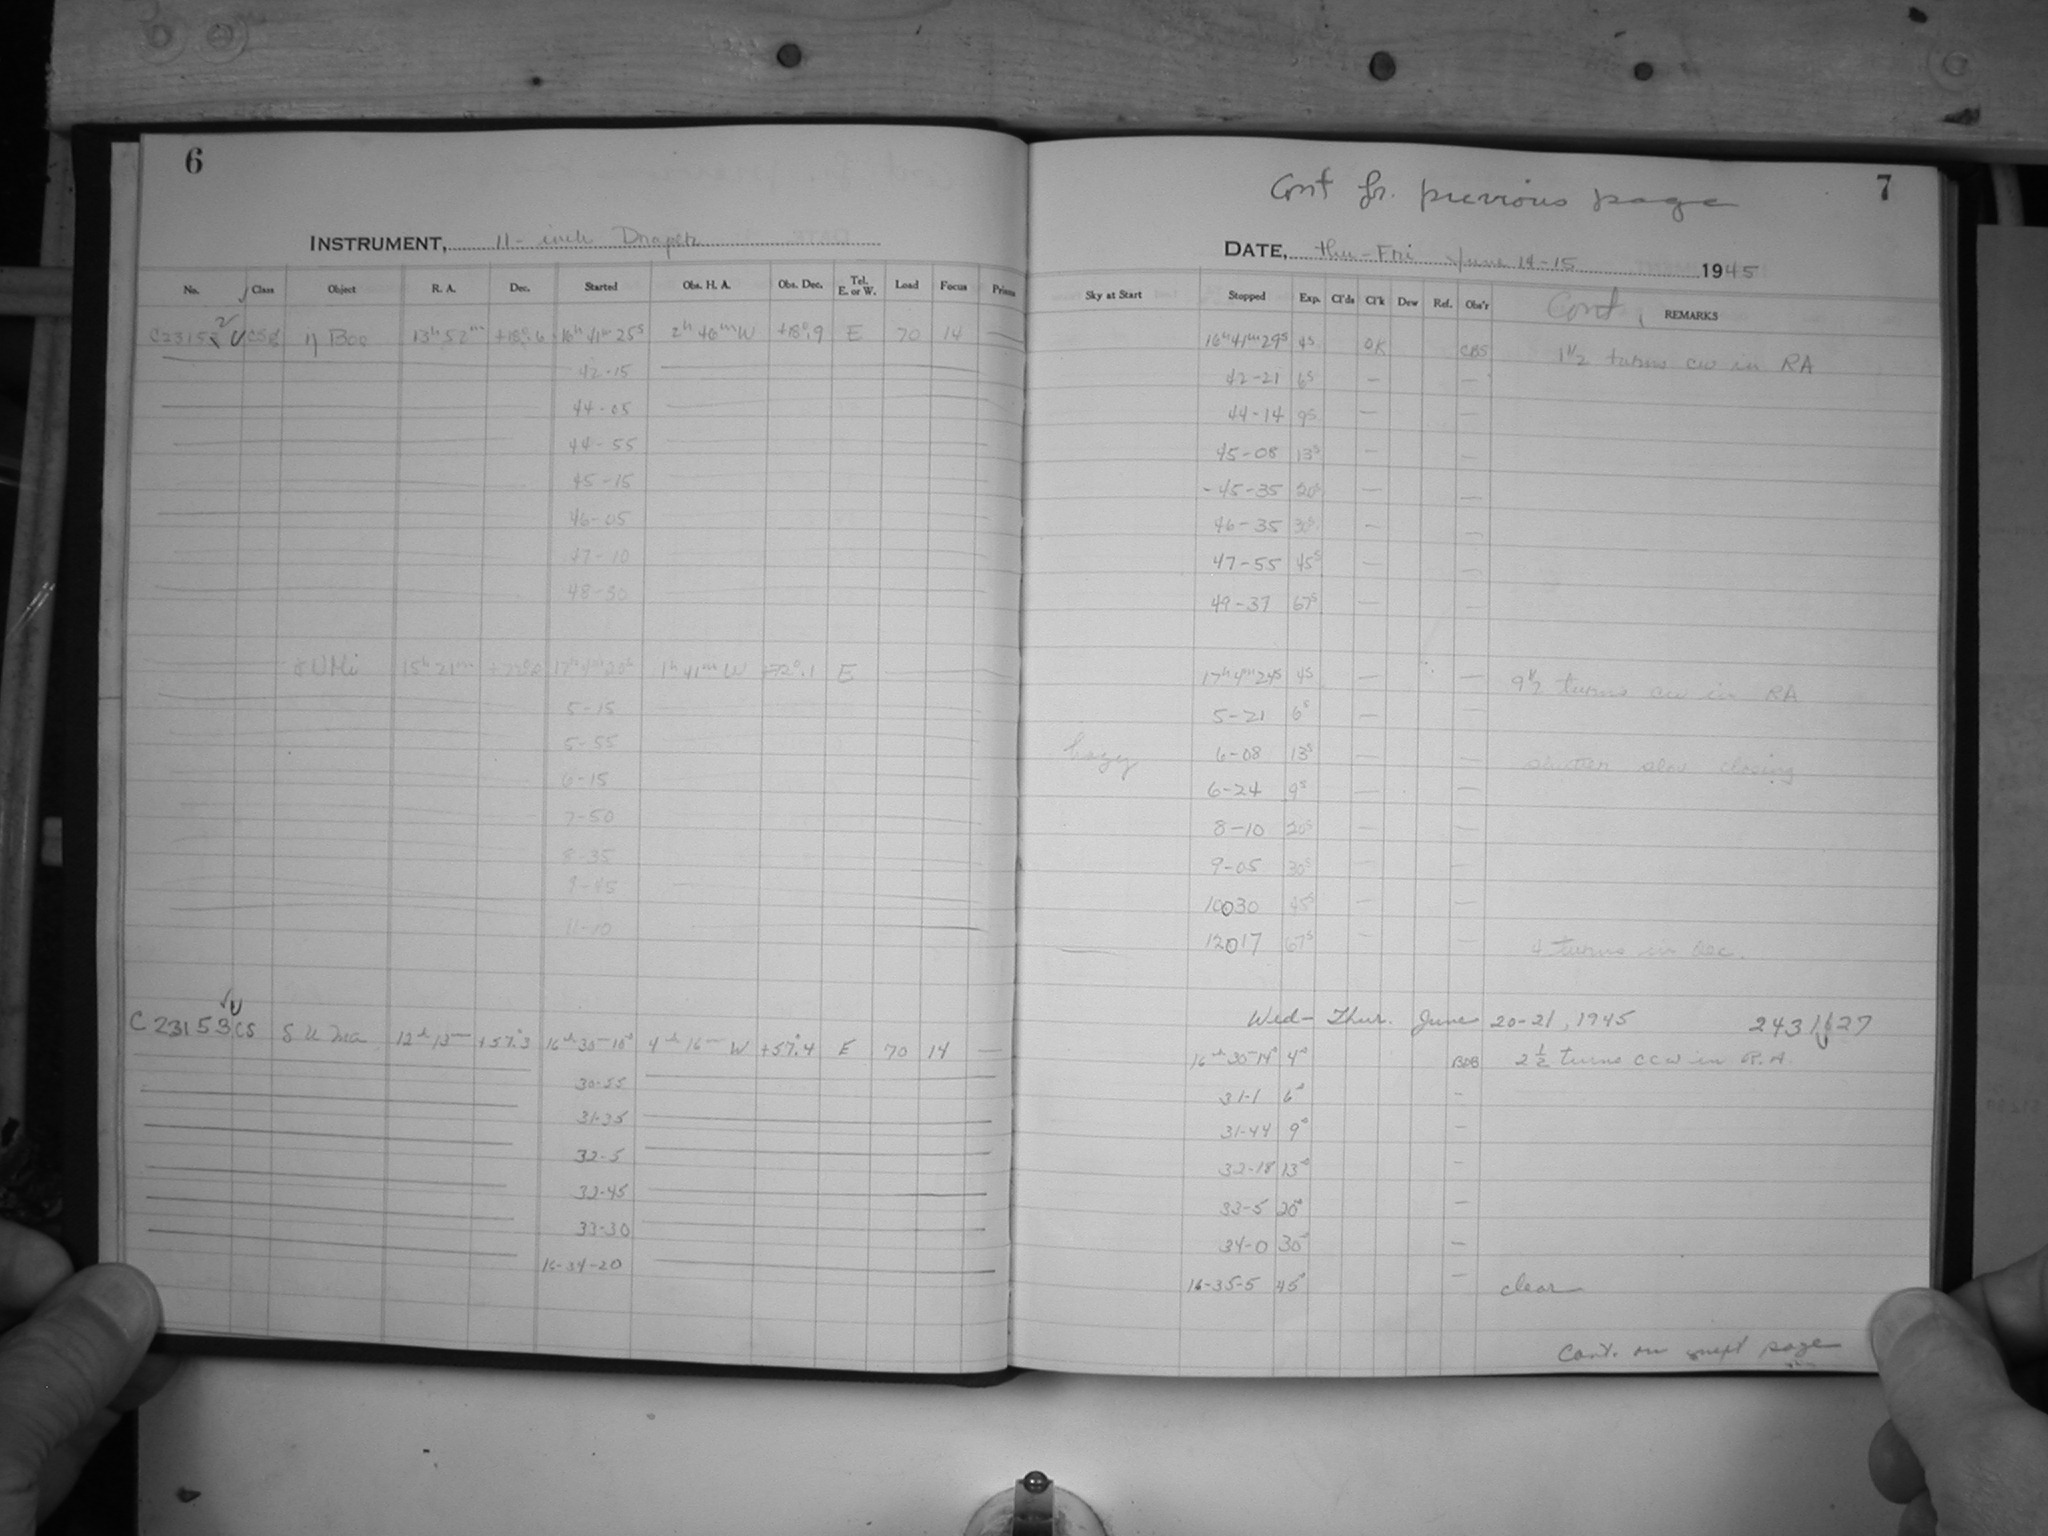 6
INSTRUMENT, 11-inch Draper
No. Class Object R. A. Dec. Started Obs. H. A. Obs. Dec. Tel. E. or W. Load Focus Prism
η Boo 13h 52m +18°.6 16h 41m 25s 2h 46m W +18°.9 E 70 14 —
42-15
44-05
44-55
45-15
46-05
47-10
48-30
UMi 15h 21m 1h 41m W +72°.1 E
5-15
5-55
6-15
7-50
8-35
9-45
11-10
C 23153 CS δ U Ma 12h 13m +57°.3 16h 30m 10s 4h 16m W +57°.4 E 70 14 —
30-55
31-35
32-5
32-45
33-30
16-34-20
Cont fr. previous page 7
DATE, Thu-Fri June 14-15 1945
Sky at Start Stopped Exp. Cl'ds Cl'k Dew Ref. Obs'r Cont. REMARKS
16h 41m 29s 4s OK CBS 1 1/2 turns cw in RA
42-21 6s — —
44-14 9s — —
45-08 13s — —
-45-35 20s — —
46-35 30s — —
47-55 45s — —
49-37 67s — —
17h 4m 24s 4s — — 9 1/2 turns cw in RA
5-21 6s — —
hazy 6-08 13s — — shutter slow closing
6-24 9s — —
8-10 20s — —
9-05 30s — —
10030 45s — —
12017 67s — — 4 turns in dec.
Wed-Thur. June 20-21, 1945
16h 30m 14s 4s BOB 2 1/2 turns ccw in R.A.
31-1 6s —
31-44 9s —
32-18 13s —
33-5 20s —
34-0 30s —
16-35-5 45s — clear
Cont. on next page